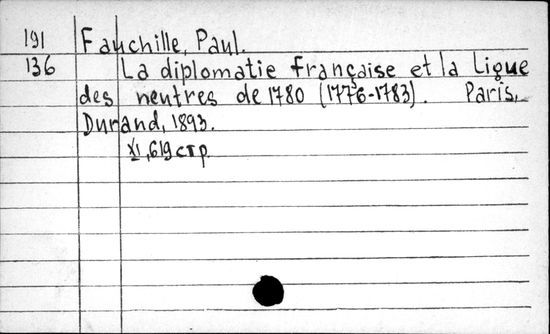 191 Fauchille, Paul.
136 La diplomatie française et la Ligue
des neutres de 1780 (1776-1783). Paris,
Durand, 1893.
XI, 619 стр.